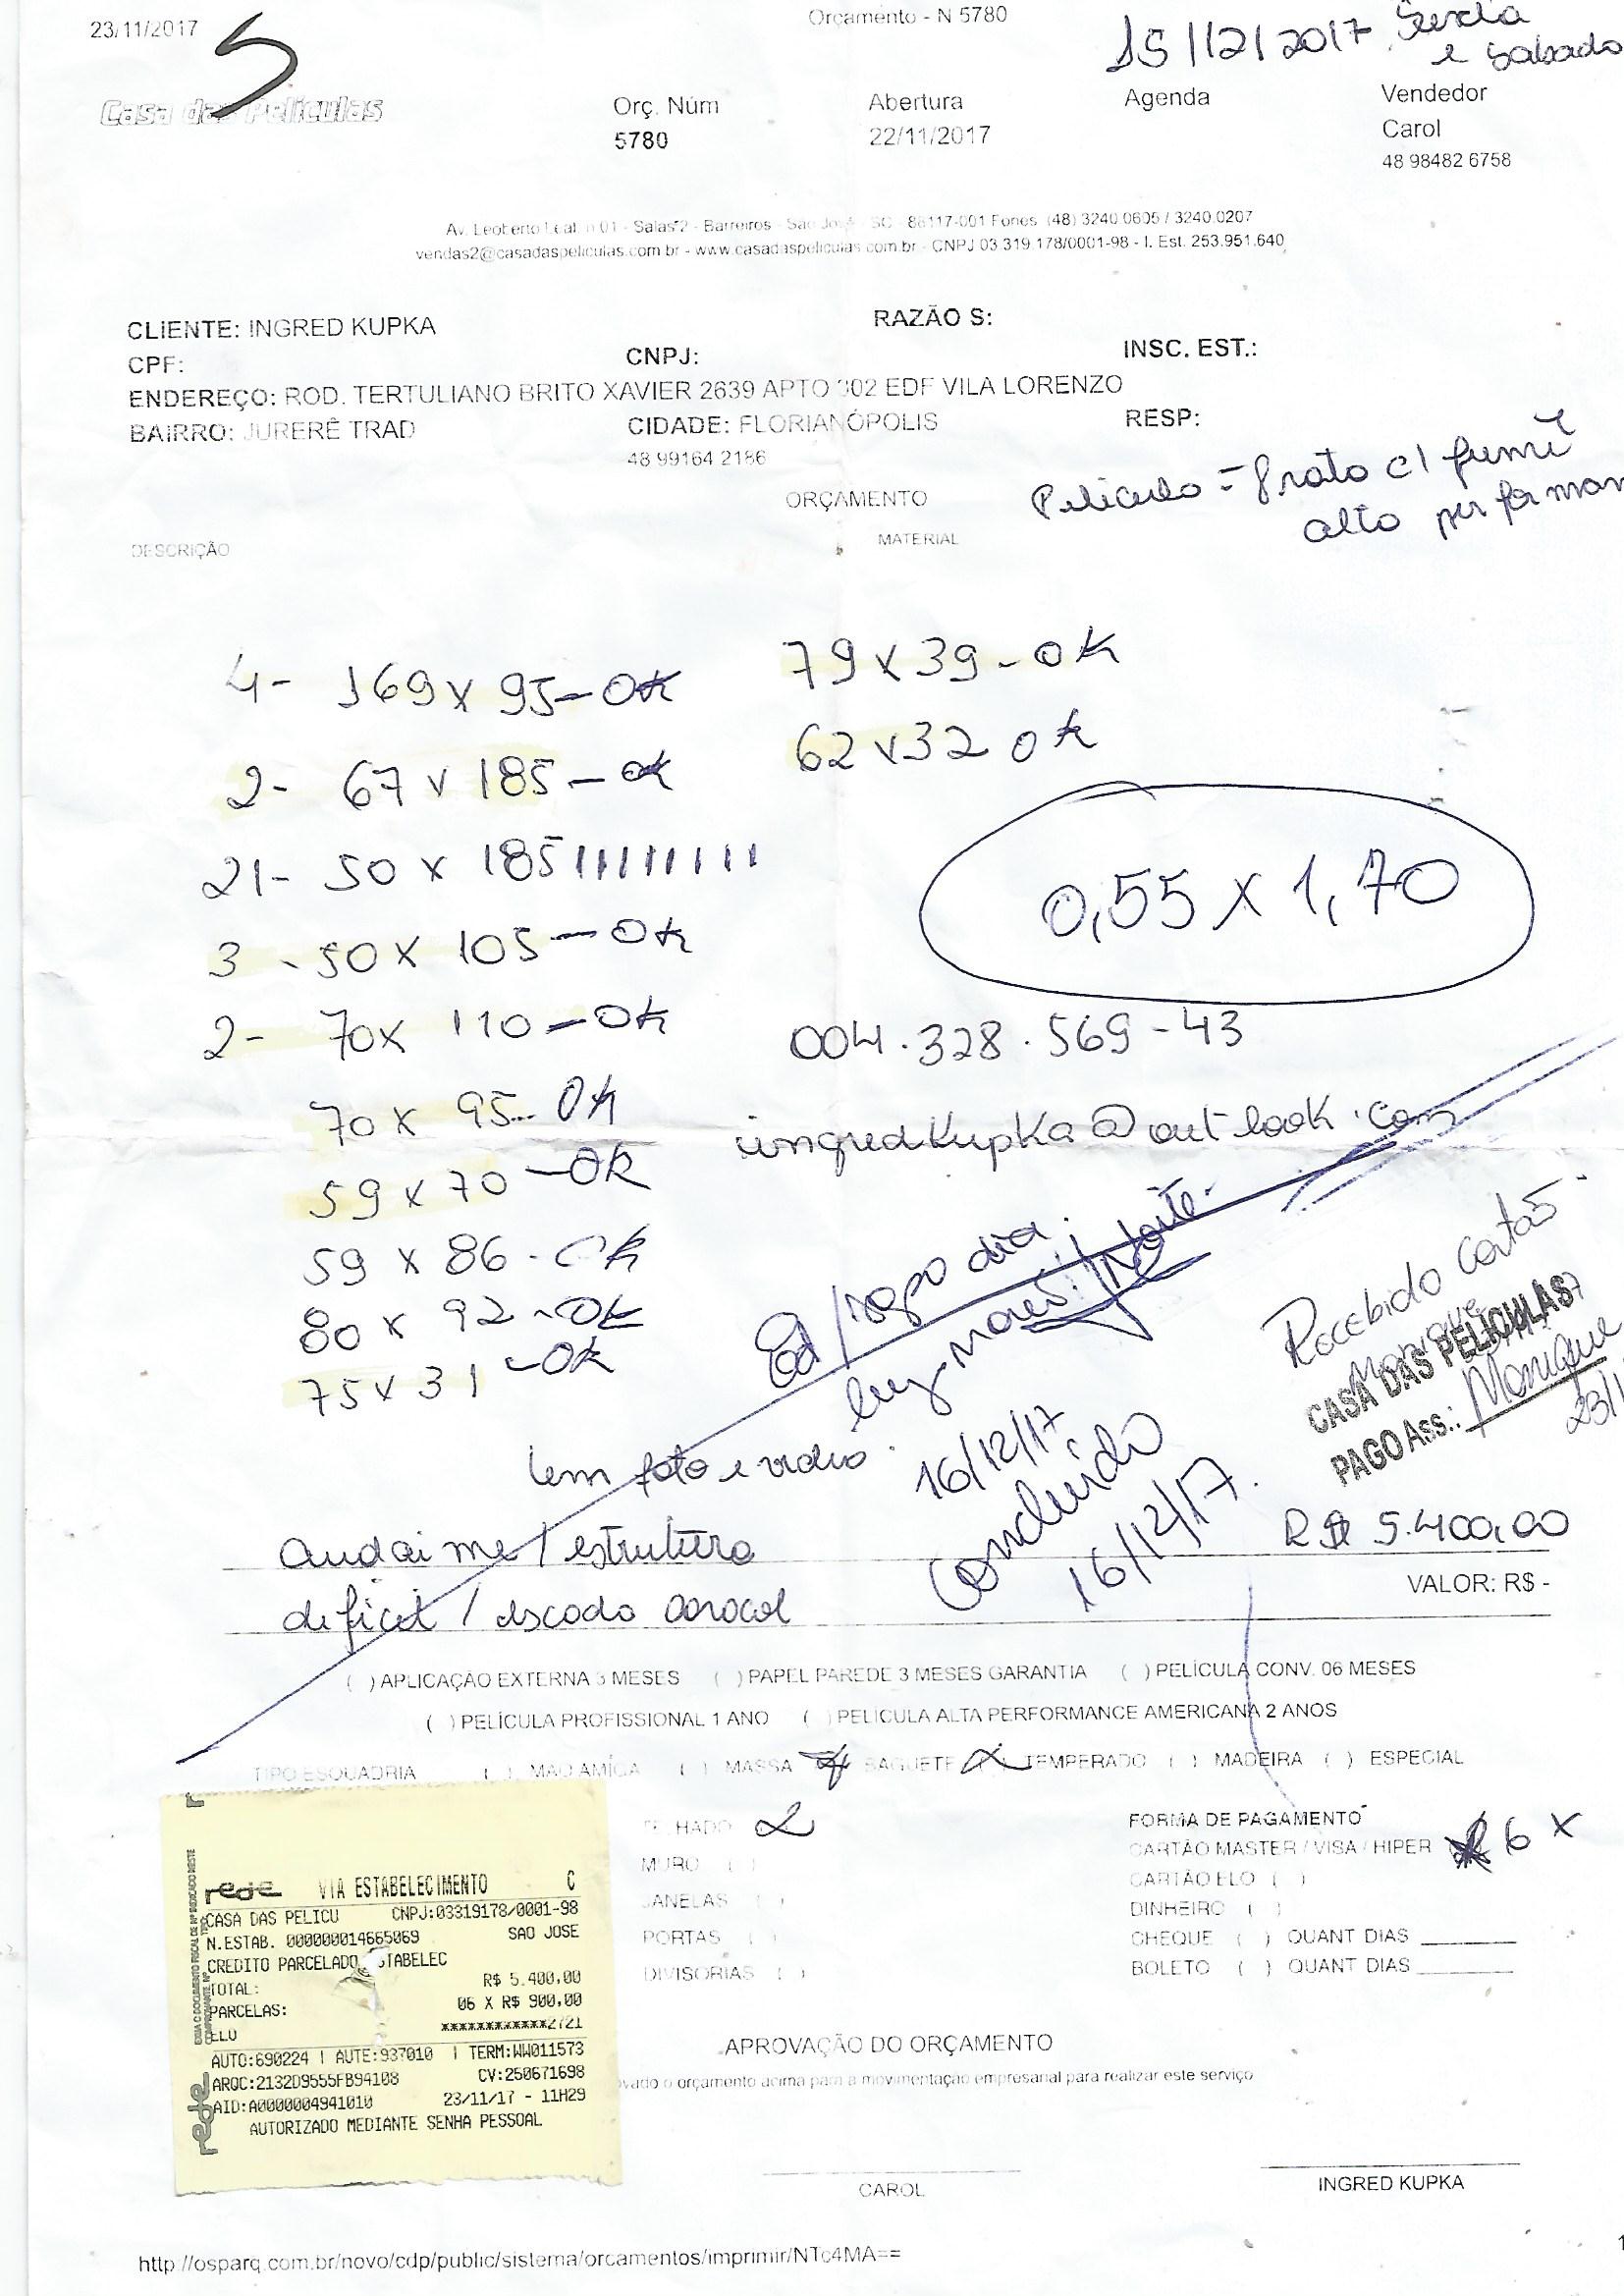 23/11/2017
Orçamento - N 5780
15/12/2017 Sexta
e Sabado
5
Casa das Películas
Orç. Núm
5780
Abertura
22/11/2017
Agenda
Vendedor
Carol
48 98482 6758
Av. Leoberto Leal n.01 - Salas 2 - Barreiros - São José - SC - 88117-001 Fones (48) 3240.0605 / 3240.0207
vendas2@casadaspeliculas.com.br - www.casadaspeliculas.com.br - CNPJ 03.319.178/0001-98 - I. Est. 253.951.640
CLIENTE: INGRED KUPKA
RAZÃO S:
CPF:
CNPJ:
INSC. EST.:
ENDEREÇO: ROD. TERTULIANO BRITO XAVIER 2639 APTO 302 EDF VILA LORENZO
BAIRRO: JURERÊ TRAD
CIDADE: FLORIANÓPOLIS
RESP:
48 99164 2186
Película = Prata c/ fumê
alto performan
ORÇAMENTO
DESCRIÇÃO
MATERIAL
4- 169 x 95 - OK
79 x 39 - OK
2- 67 x 185 - OK
62 x 32 OK
21- 50 x 185 | | | | | | | | |
0,55 x 1,70
3 - 50 x 105 - OK
2- 70 x 110 - OK
004.328.569-43
70 x 95 - OK
ingredkupka@outlook.com
59 x 70 - OK
59 x 86 - OK
80 x 92 - OK
75 x 31 - OK
dia
luz Noite.
Recebido Cartão
CASA DAS PELICULAS
PAGO Ass.: Monique
23/1
tem foto e video.
16/12/17
Concluído
16/12/17.
R$ 5.400,00
andaime / estrutura
VALOR: R$ -
dificil / escada caracol
( ) APLICAÇÃO EXTERNA 3 MESES ( ) PAPEL PAREDE 3 MESES GARANTIA ( ) PELÍCULA CONV. 06 MESES
( ) PELÍCULA PROFISSIONAL 1 ANO ( ) PELICULA ALTA PERFORMANCE AMERICANA 2 ANOS
TIPO ESQUADRIA ( ) MÃO AMIGA ( ) MASSA (x) BAGUETE (x) TEMPERADO ( ) MADEIRA ( ) ESPECIAL
FECHADO x
MURO ( )
JANELAS ( )
PORTAS ( )
DIVISORIAS ( )
FORMA DE PAGAMENTO
CARTÃO MASTER / VISA / HIPER 6 x
CARTÃO ELO ( )
DINHEIRO ( )
CHEQUE ( ) QUANT DIAS
BOLETO ( ) QUANT DIAS
rede VIA ESTABELECIMENTO C
CASA DAS PELICU CNPJ:03319178/0001-98
N.ESTAB. 000000014665069 SAO JOSE
CREDITO PARCELADO ESTABELEC
TOTAL: R$ 5.400,00
PARCELAS: 06 X R$ 900,00
ELO ************2721
AUTO:690224 | AUTE:937010 | TERM:WW011573
ARQC:2132D9555FB94108 CV:250671698
AID:A0000004941010 23/11/17 - 11H29
AUTORIZADO MEDIANTE SENHA PESSOAL
rede
APROVAÇÃO DO ORÇAMENTO
vado o orçamento acima para a movimentação empresarial para realizar este serviço
CAROL
INGRED KUPKA
http://osparq.com.br/novo/cdp/public/sistema/orcamentos/imprimir/NTc4MA==
1